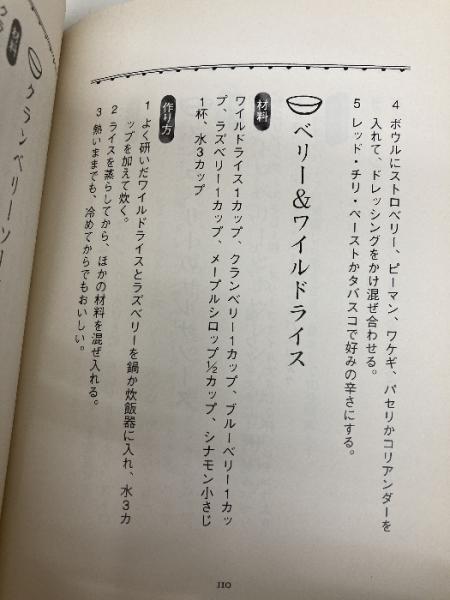 4 ボウルにストロベリー、ピーマン、ワケギ、パセリかコリアンダーを
入れて、ドレッシングをかけ混ぜ合わせる。
5 レッド・チリ・ペーストかタバスコで好みの辛さにする。
ベリー&ワイルドライス
材料
ワイルドライス1カップ、クランベリー1カップ、ブルーベリー1カッ
プ、ラズベリー1カップ、メープルシロップ½カップ、シナモン小さじ
1杯、水3カップ
作り方
1 よく研いだワイルドライスとラズベリーを鍋か炊飯器に入れ、水3カ
ップを加えて炊く。
2 ライスを蒸らしてから、ほかの材料を混ぜ入れる。
3 熱いままでも、冷めてからでもおいしい。
110
クランベリーソー
材料